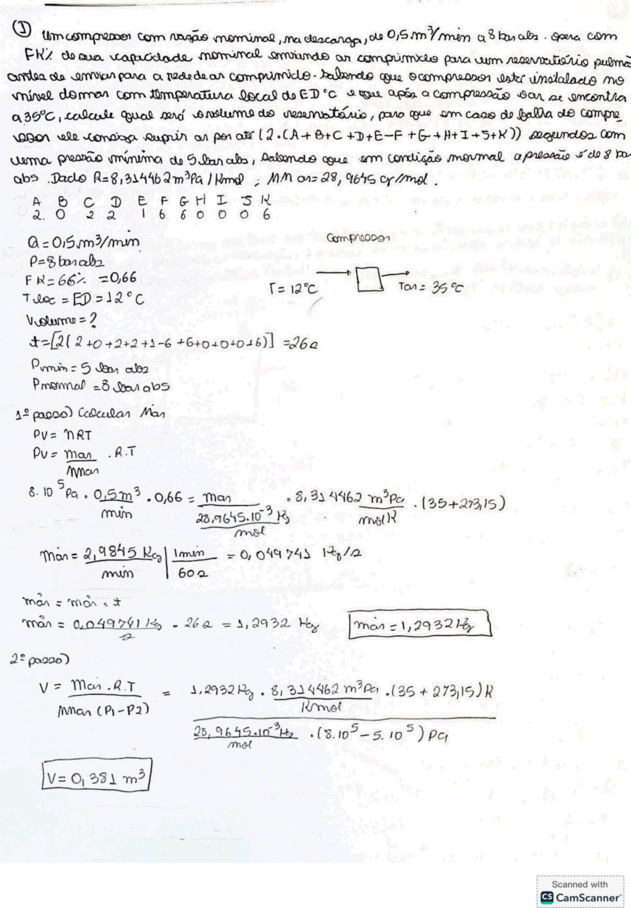 ① Um compressor com vazão nominal, na descarga, de 0,5 m³/min a 8 bar abs. opera com
FK% de sua capacidade nominal enviando ar comprimido para um reservatório pulmão
antes de enviar para a rede de ar comprimido. Sabendo que o compressor está instalado no
nível do mar com temperatura local de ED °C e que após a compressão o ar se encontra
a 35°C, calcule qual será o volume do reservatório, para que em caso de falha do compre
ssor ele consiga suprir as por até (2.(A+B+C+D+E-F+G+H+I+J+K)) segundos com
uma pressão mínima de 5 bar abs, sabendo que em condição normal a pressão é de 8 ba
abs. Dado R=8,314462 m³Pa/Kmol ; MM ar=28,9645 g/mol.
A B C D E F G H I J K
2 0 2 2 1 6 6 0 0 0 6
Q = 0,5 m³/min
P=8 bar abs
FK=66% =0,66
T loc = ED = 12°C
Volume = ?
t=[2(2+0+2+2+1-6+6+0+0+0+6)] =26s
Pmin = 5 bar abs
Pnormal = 8 bar abs
Compressor
T= 12°C
Tar= 35°C
1º passo) Calcular Mar
PV = nRT
PV = mar/MMar . R.T
8.10⁵Pa . 0,5m³/min . 0,66 = mar/28,9645.10⁻³Kg/mol . 8,314462 m³Pa/molK . (35+273,15)
ṁar = 2,9845 Kg/min | 1min/60s = 0,049741 Kg/s
mar = ṁar . t
mar = 0,049741 Kg/s . 26s = 1,2932 Kg
mar = 1,2932 Kg
2º passo)
V = Mar.R.T/MMar(P1-P2) = 1,2932Kg . 8,314462 m³Pa/Kmol . (35+273,15)K
28,9645.10⁻³Kg/mol . (8.10⁵ - 5.10⁵) Pa
V = 0,381 m³
Scanned with
CS CamScanner